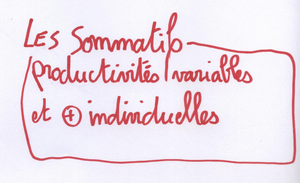 Les Sommatifs
productivités variables
et ⊕ individuelles